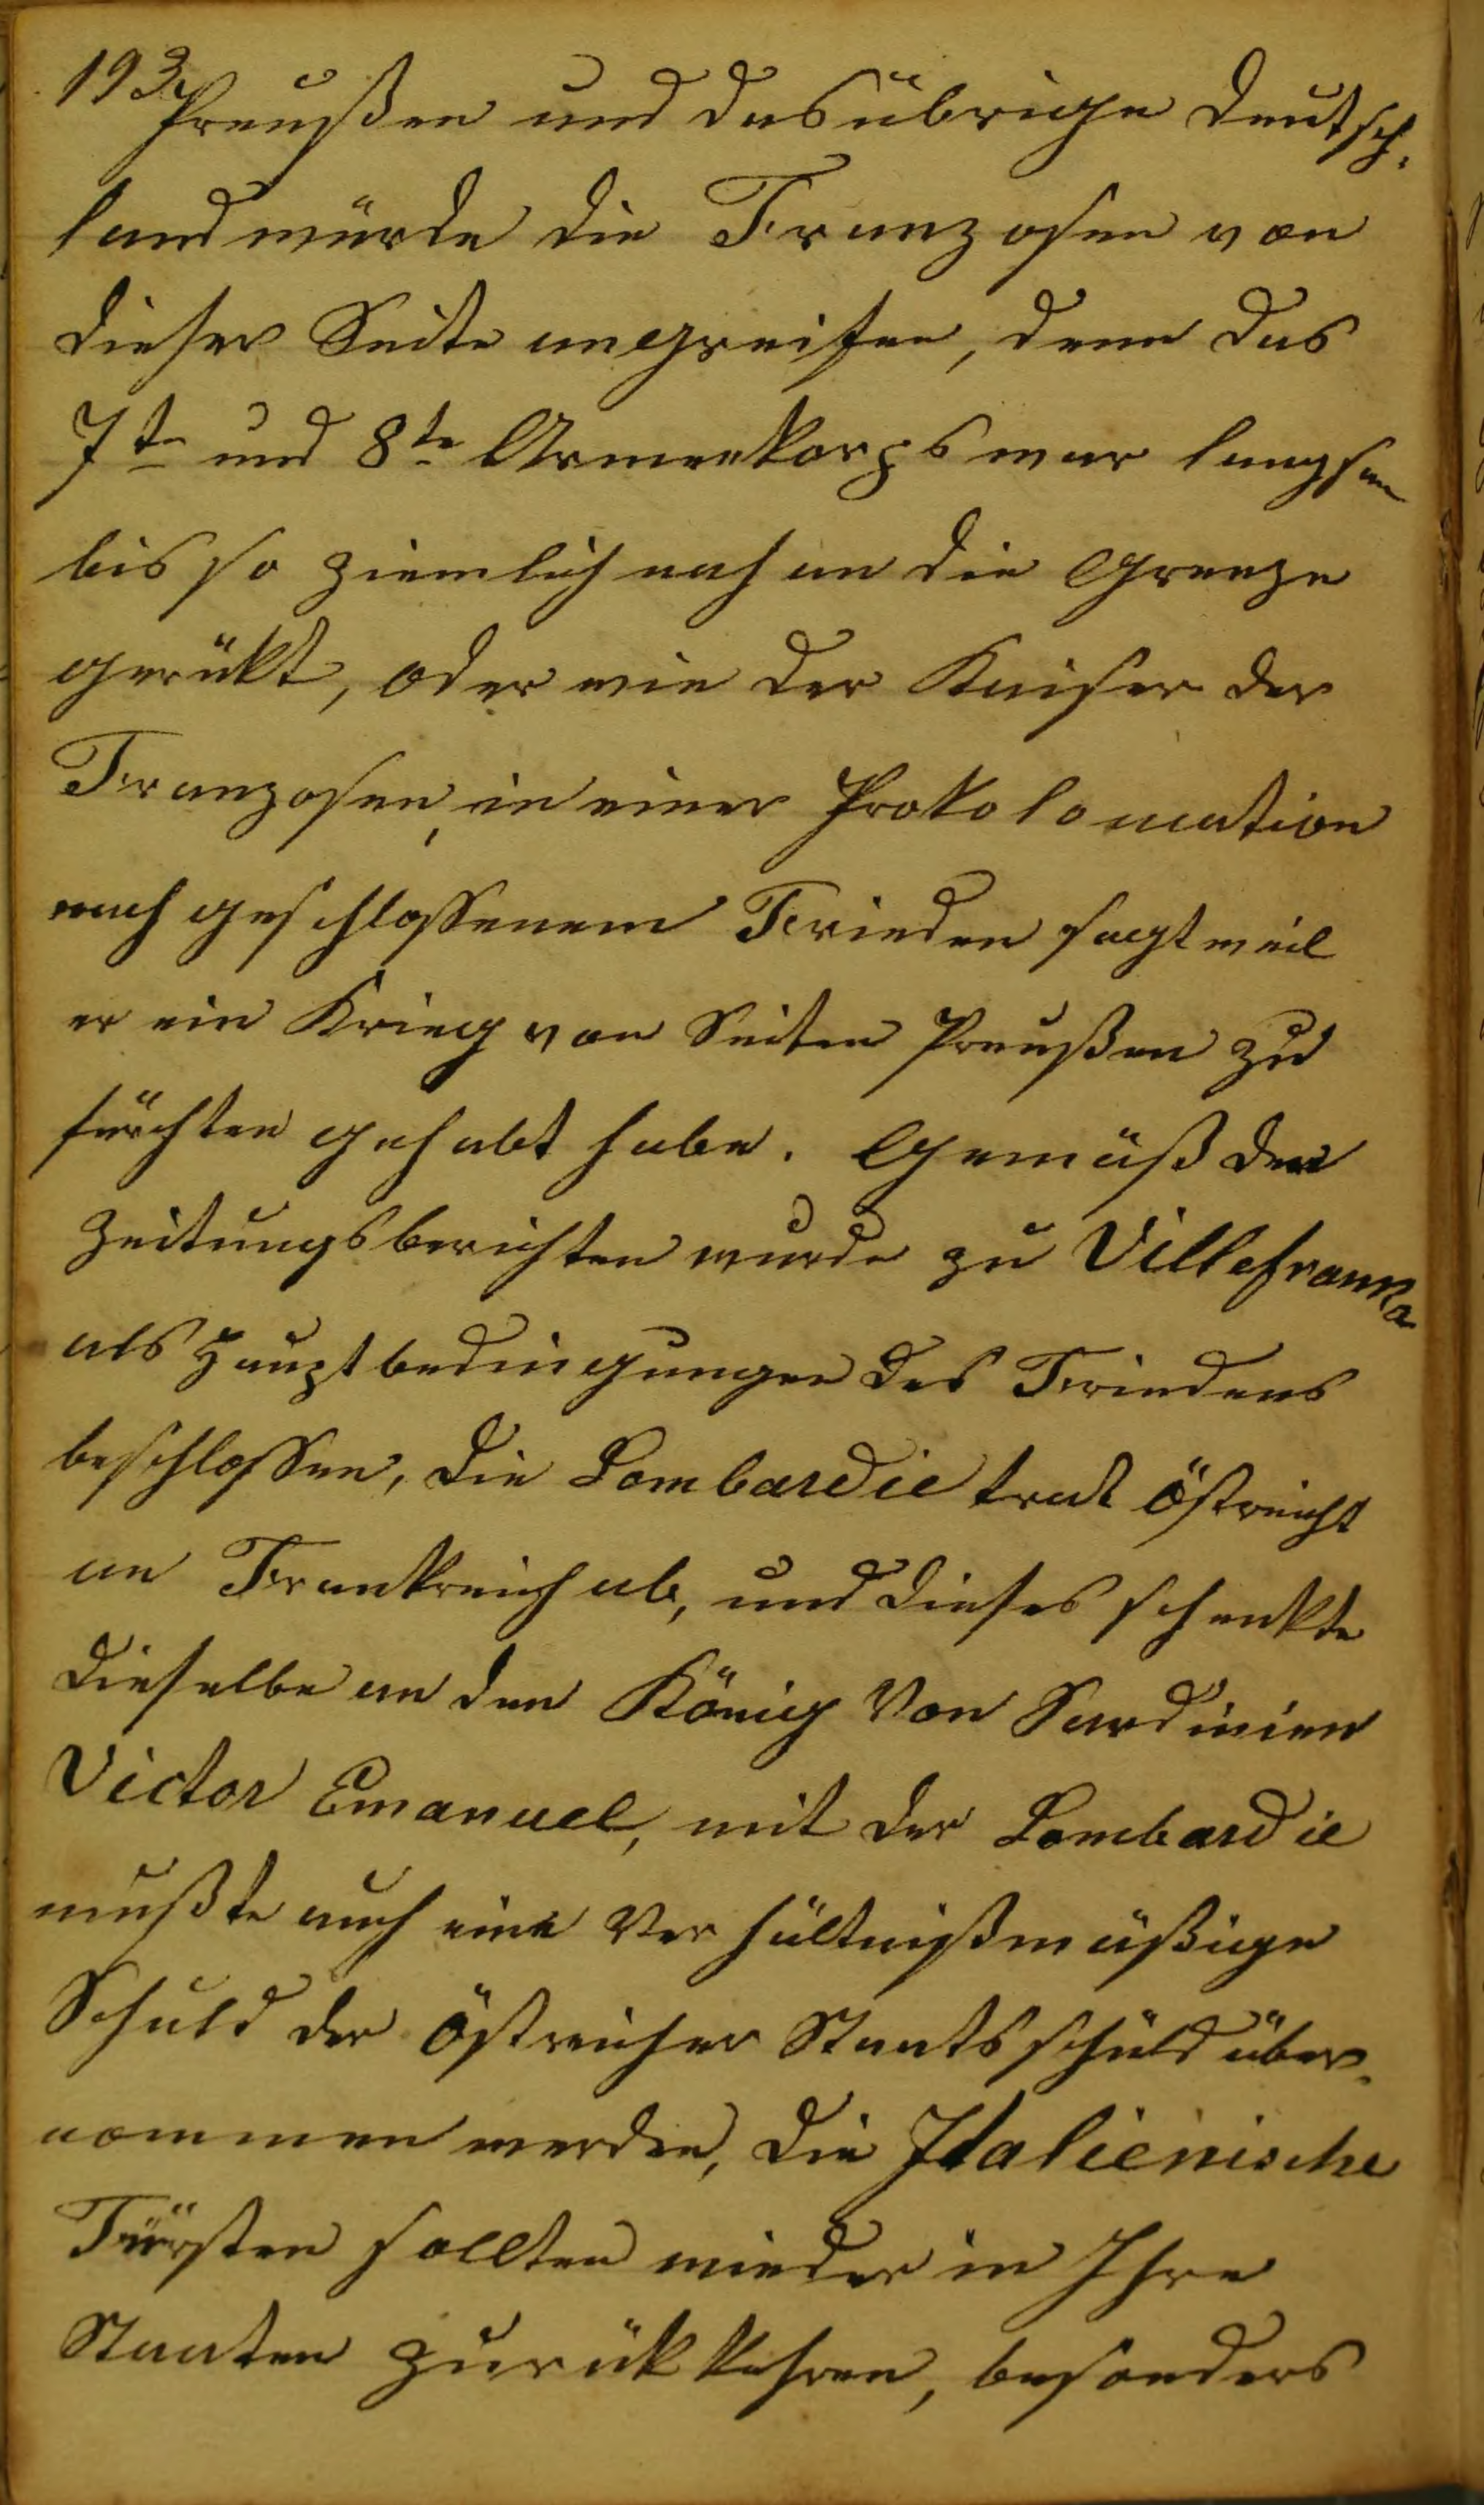 193, Preußen und das übrige Deutsch-
land würde die Franzosen von
dieser Seite angreifen, denn das
7te und 8te Armeekorps war langsam
bis so ziemlich nah an die Grenze
gerükt, oder wie der Kaiser der
Franzosen, in einer Prokolomation
nach geschlossenem Frieden sagt weil
er ein Krieg von Seiten Preußen zu
fürchten gehabt habe. Gemäß den
Zeitungsberichten wurde zu Villefranka
als Hauptbedingungen des Friedens
beschlossen, die Lombardie trat Östreicht
an Frankreich ab, und dieses schenkte
dieselbe an den König von Sardinien
Victor Emanuel, mit der Lombardie
mußte auch eine Verhältnißmäßige
Schuld der Östreicher Staatsschuld über-
nommen werden, die Italienische
Fürsten sollten wieder in Ihre
Staaten zurükkehren, besonders